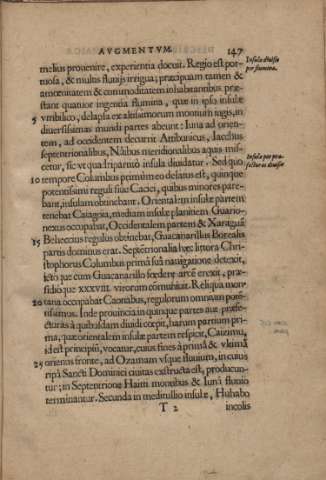 AVGMENTVM. 147
melius prouenire, experientia docuit. Regio est por- Insula diuisa
tuosa, & multis fluuijs irrigua; præcipuam tamen & per flumina.
amœnitatem & commoditatem inhabitantibus præ-
stant quatuor ingentia flumina, quæ in ipso insulæ
5 vmbilico, delapsa ex altissimorum montium iugis, in
diuersissimas mundi partes abeunt: Iuna ad orien-
tem, ad occidentem decurrit Attibunicus, Iacchus
septentrionalibus, Naibus meridionalibus aquis mis-
cetur, sic vt quadripartitò insula diuidatur. Sed quo Insula per præ-
10 tempore Columbus primùm eo delatus est, quinque fecturas diuisæ
potentissimi reguli siue Cacici, quibus minores pare-
bant, insulam obtinebant. Orientalem insulæ partem
tenebat Caiagoia, mediam insulæ planitiem Guario-
nexus occupabat, Occidentalem partem & Xaraguã
15 Behechius regulus obtinebat, Guacanarillus Borealis
partis dominus erat. Septentrionalia hæc littora Chri-
stophorus Columbus primâ suâ nauigatione detexit,
icto que cum Guacanarillo fœdere arcẽ erexit, præ-
sidio que XXXVIII. virorum cõmuniuit. Reliqua mon-
20 tana occupabat Caonabus, regulorum omnium poten-
tissimus. Inde prouincia in quinque partes aut præfe-
cturas à quibusdam diuidi cœpit, harum partium pri-
ma, quæ orientalem insulæ partem respicit, Caizimu,
id est principiũ, vocatur, cuius fines à primâ & vltimâ
25 orientis fronte, ad Ozamam vsque fluuium, in cuius
ripâ Sancti Dominici ciuitas exstructa est, producun-
tur; in Septentrione Haiti montibus & Iunâ fluuio
terminantur. Secunda in meditullio insulæ, Huhabo
T 2 incolis